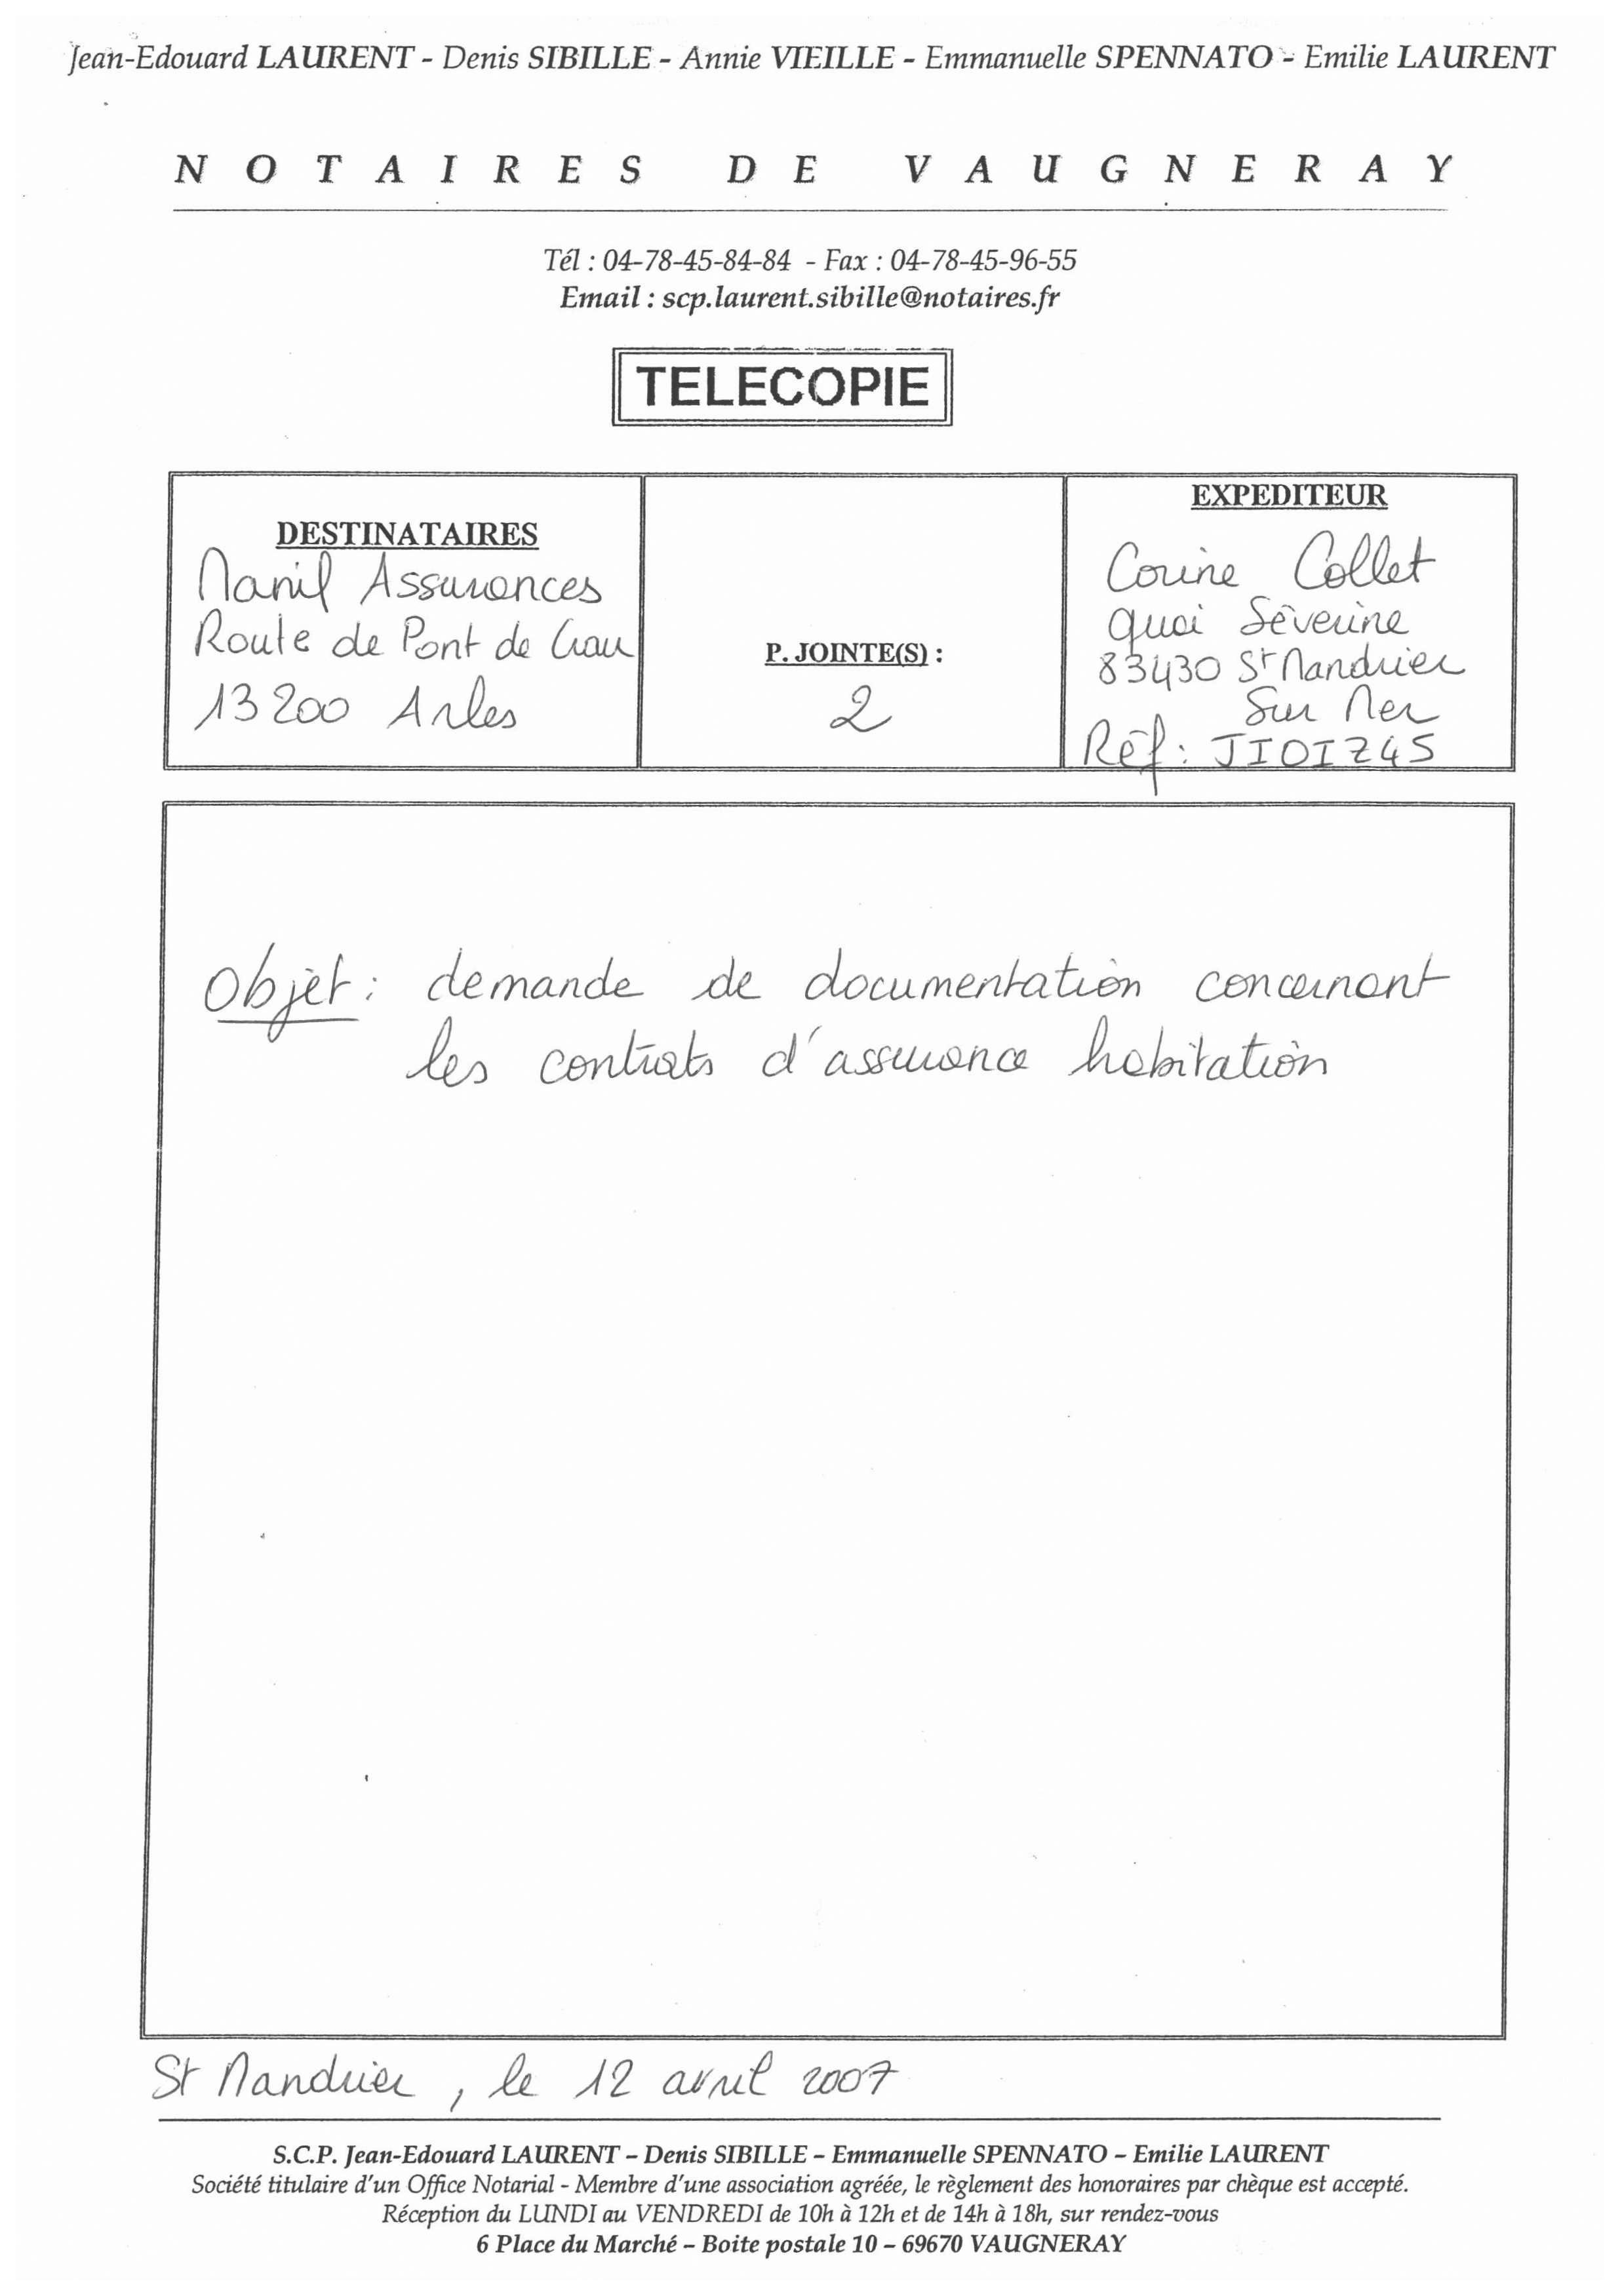 Jean-Edouard LAURENT - Denis SIBILLE - Annie VIEILLE - Emmanuelle SPENNATO - Emilie LAURENT
NOTAIRES DE VAUGNERAY
Tél : 04-78-45-84-84 - Fax : 04-78-45-96-55
Email : scp.laurent.sibille@notaires.fr
TELECOPIE
DESTINATAIRES
Manif Assurances
Route de Pont de Crau
13200 Arles
P. JOINTE(S) :
2
EXPEDITEUR
Corine Collet
quai Séverine
83430 St Mandrier
Sur Mer
Réf : JIOIZ45
Objet : demande de documentation concernant
les contrats d'assurance habitation
St Mandrier, le 12 avril 2007
S.C.P. Jean-Edouard LAURENT – Denis SIBILLE – Emmanuelle SPENNATO – Emilie LAURENT
Société titulaire d'un Office Notarial - Membre d'une association agréée, le règlement des honoraires par chèque est accepté.
Réception du LUNDI au VENDREDI de 10h à 12h et de 14h à 18h, sur rendez-vous
6 Place du Marché – Boite postale 10 – 69670 VAUGNERAY